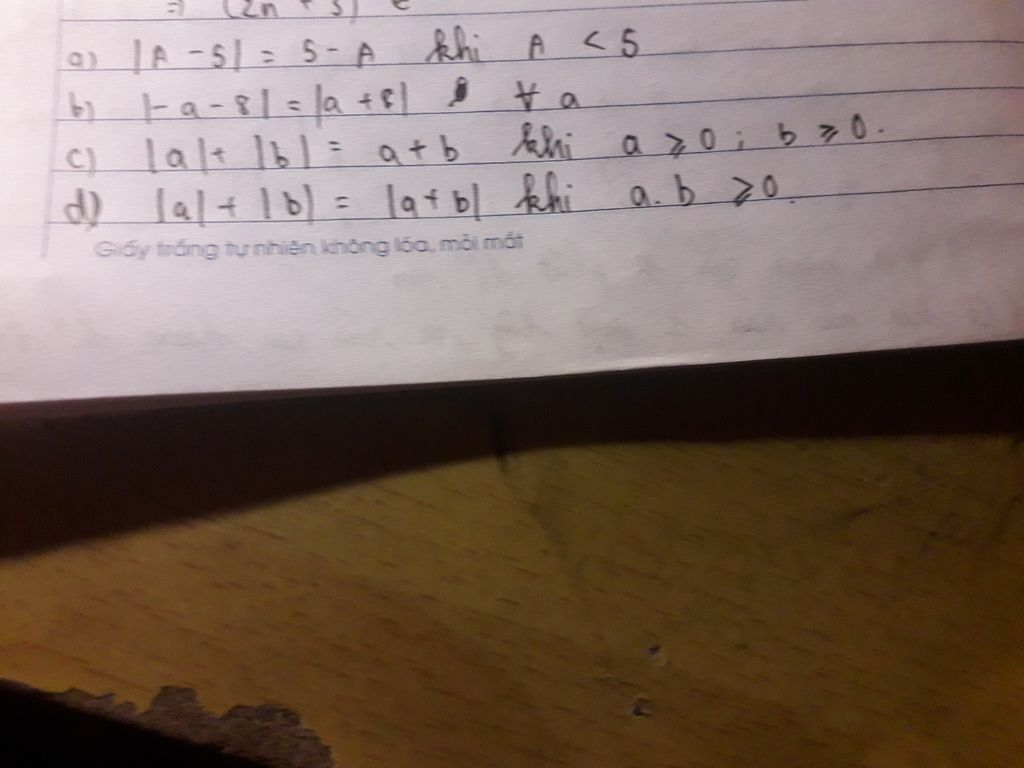 =) (2n + 5) e
a) |A - 5| = 5 - A khi A < 5
b) |-a - 8| = |a + 8| ∀ a
c) |a| + |b| = a + b khi a ⩾ 0 ; b ⩾ 0.
d) |a| + |b| = |a + b| khi a.b ⩾ 0.
Giấy trắng tự nhiên không lóa, mỏi mắt